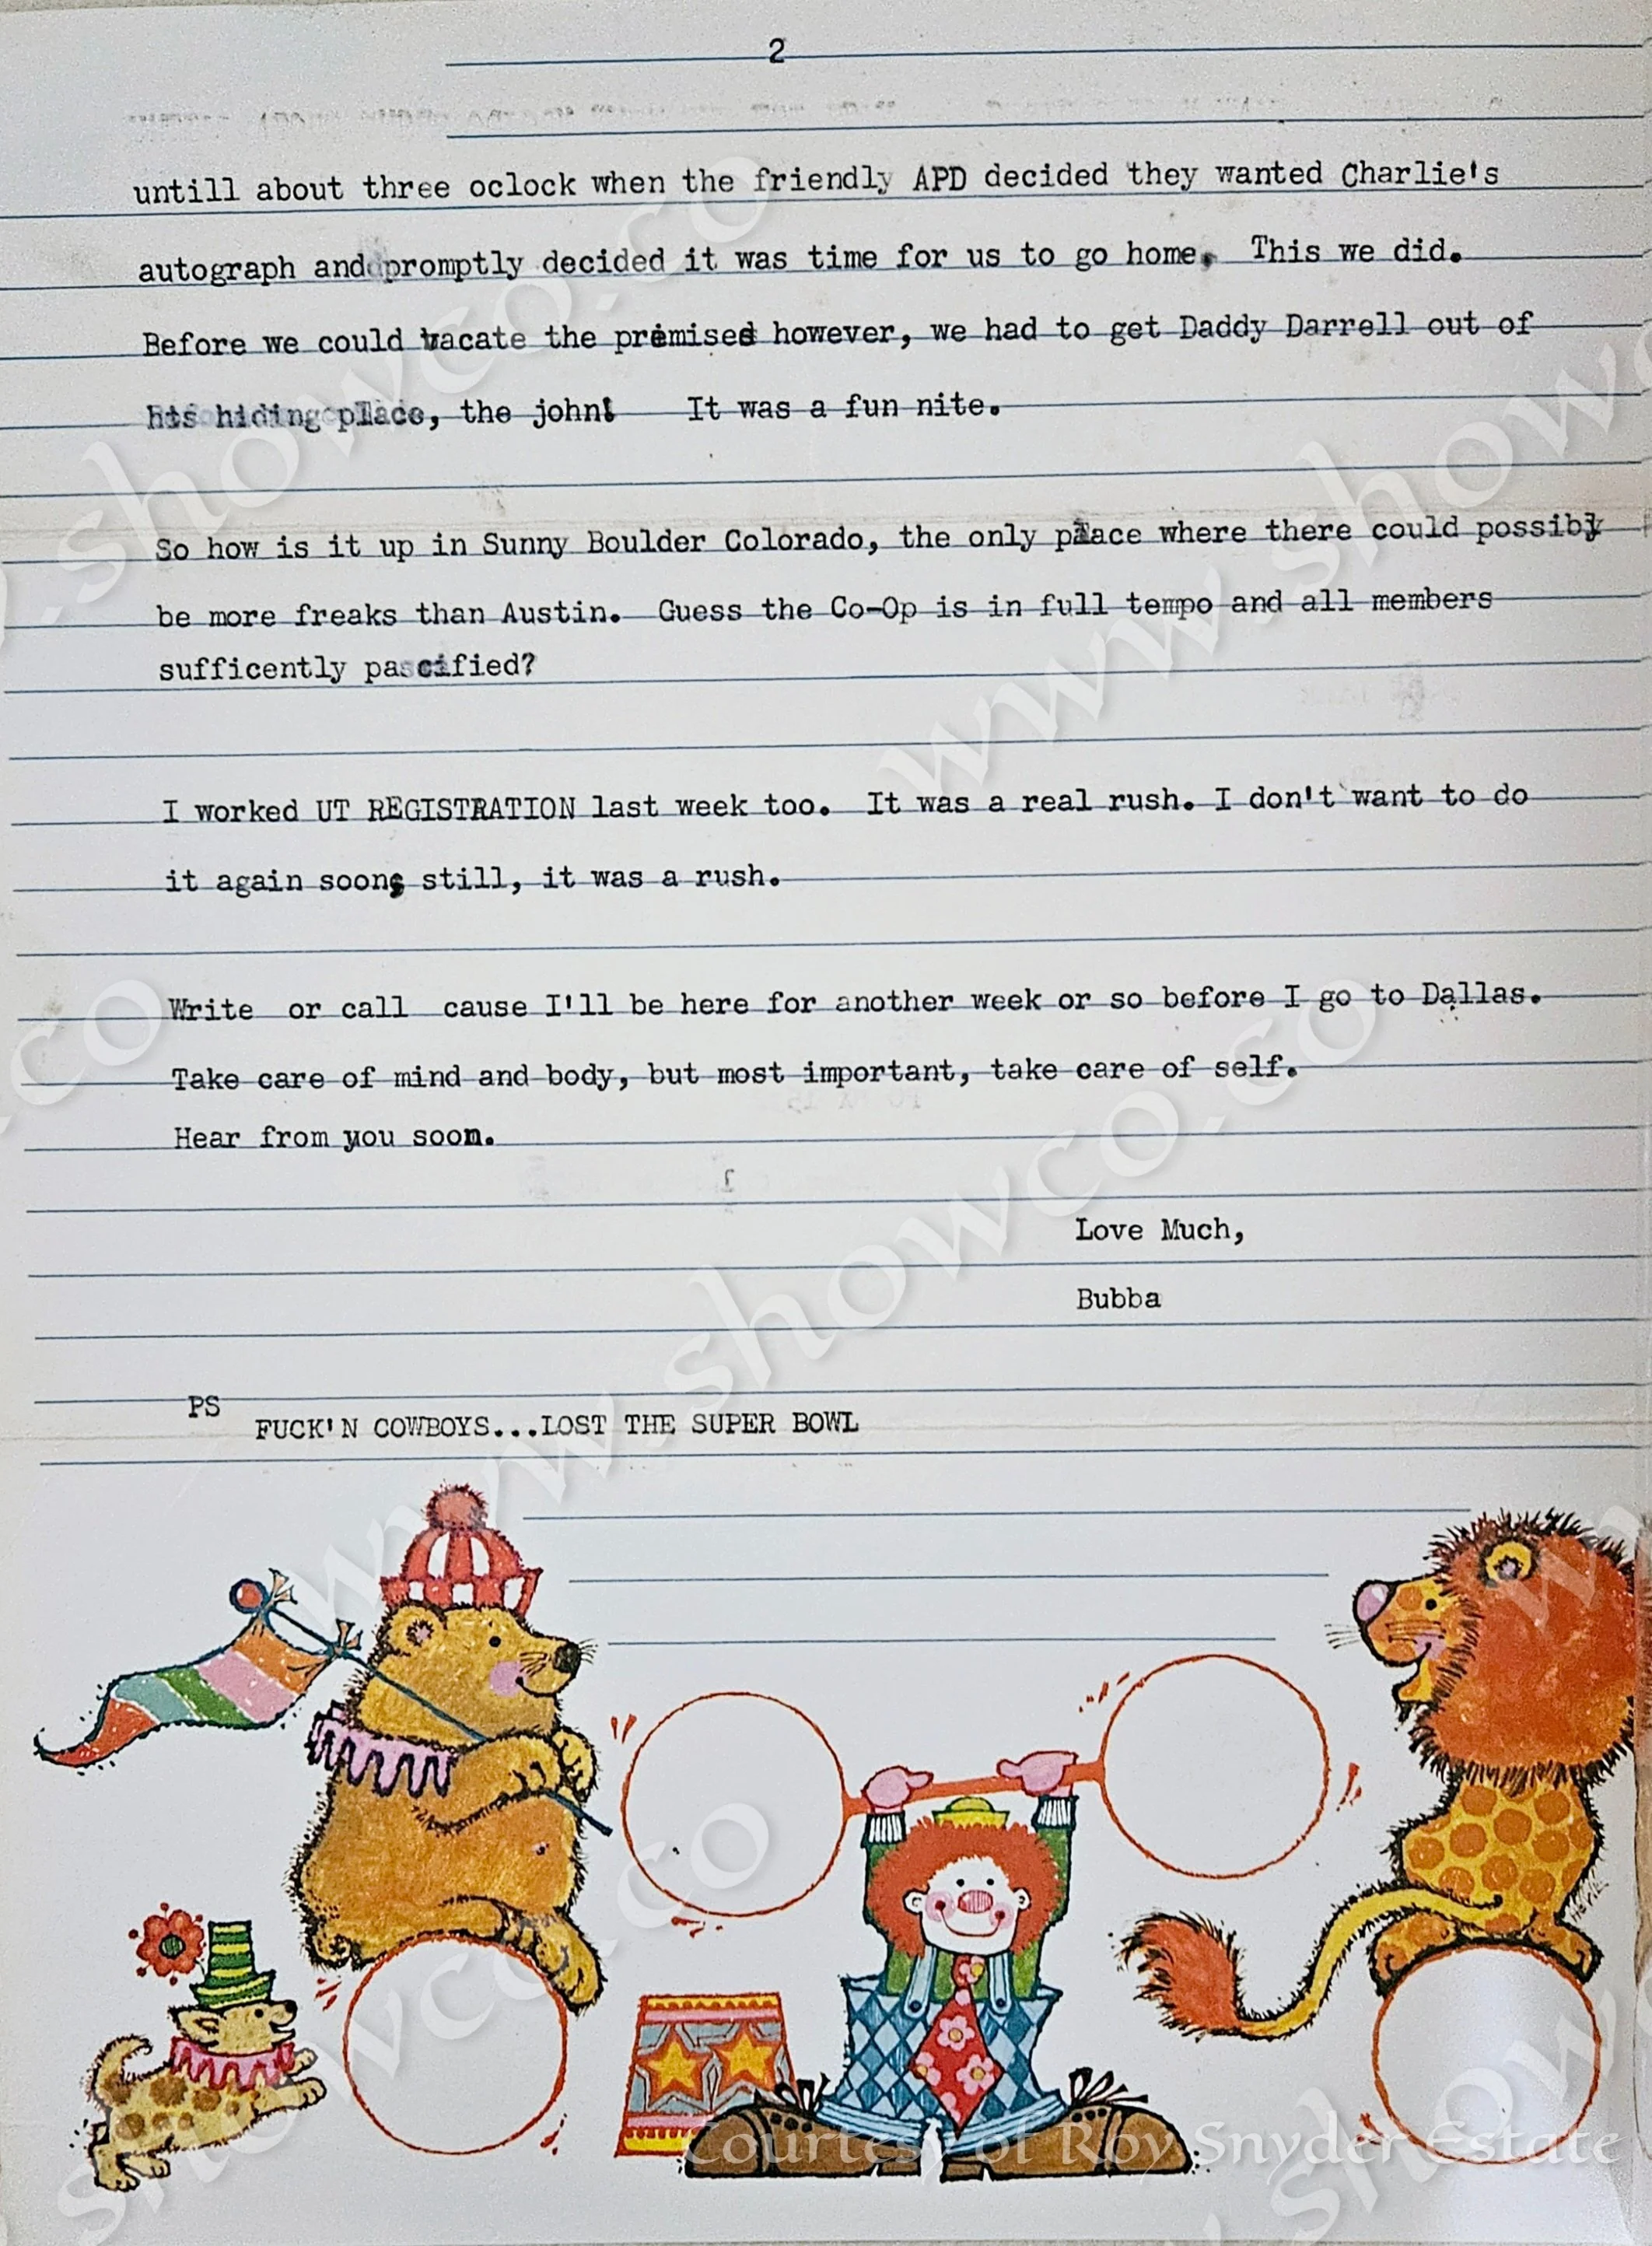 2
untill about three oclock when the friendly APD decided they wanted Charlie's
autograph and promptly decided it was time for us to go home. This we did.
Before we could vacate the premised however, we had to get Daddy Darrell out of
his hiding place, the john! It was a fun nite.
So how is it up in Sunny Boulder Colorado, the only place where there could possibly
be more freaks than Austin. Guess the Co-Op is in full tempo and all members
sufficently pascified?
I worked UT REGISTRATION last week too. It was a real rush. I don't want to do
it again soon, still, it was a rush.
Write or call cause I'll be here for another week or so before I go to Dallas.
Take care of mind and body, but most important, take care of self.
Hear from you soon.
Love Much,
Bubba
PS
FUCK'N COWBOYS...LOST THE SUPER BOWL
Courtesy of Roy Snyder Estate
www.showco.co